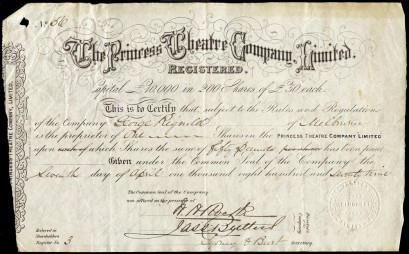 No 56
The Princess Theatre Company, Limited.
REGISTERED.
Capital £10,000 in 200 Shares of £50 each.
This is to Certify that, subject to the Rules and Regulations
of the Company George of Melbourne
is the proprietor of One Shares in the PRINCESS THEATRE COMPANY LIMITED
upon each of which Shares the sum of fifty pounds has been paid.
Given under the Common Seal of the Company the
Seventh day of April one thousand eight hundred and Seventy nine
The Common Seal of the Company
was affixed in the presence of
Secretary
Entered in
Shareholders
Register No 3
PRINCESS THEATRE COMPANY, LIMITED.